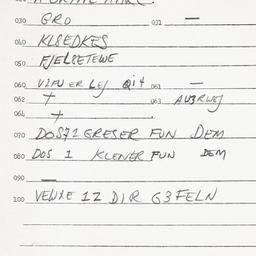 030 GRO 031 —
040 KLSEDKES
050 FJELSETEWE
060 061 —
062 + 063
064 +
070 DOS71 GRESER FUN DEM
080 DOS 1 KLENER FUN DEM
090 —
100 VELXE 12 DIR G3FELN